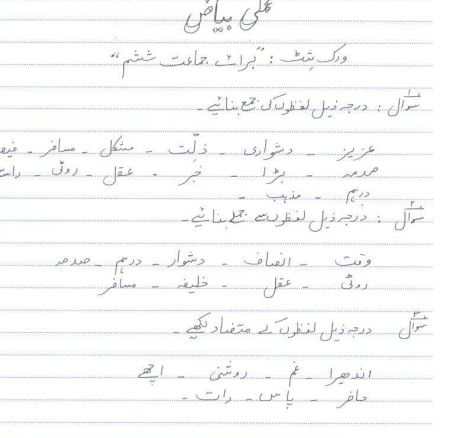 عملی بیاض
ورک شیٹ : "براۓ جماعت ششم"
سوال ۱ : درجہ ذیل لفظوں کی جمع بنائیے۔
عزیز - دشواری - ذلّت - مشکل - مسافر -
صدمہ - بڑا - خبر - عقل - روٹی -
درہم - مذہب -
سوال ۲ : درجہ ذیل لفظوں سے جملے بنائیے۔
وقت - انصاف - دشوار - درہم - صدمہ
روٹی - عقل - خلیفہ - مسافر
سوال ۳ درجہ ذیل لفظوں کے متضاد لکھیے۔
اندھیرا - غم - روشنی - اچھے
حاضر - پاس - رات -